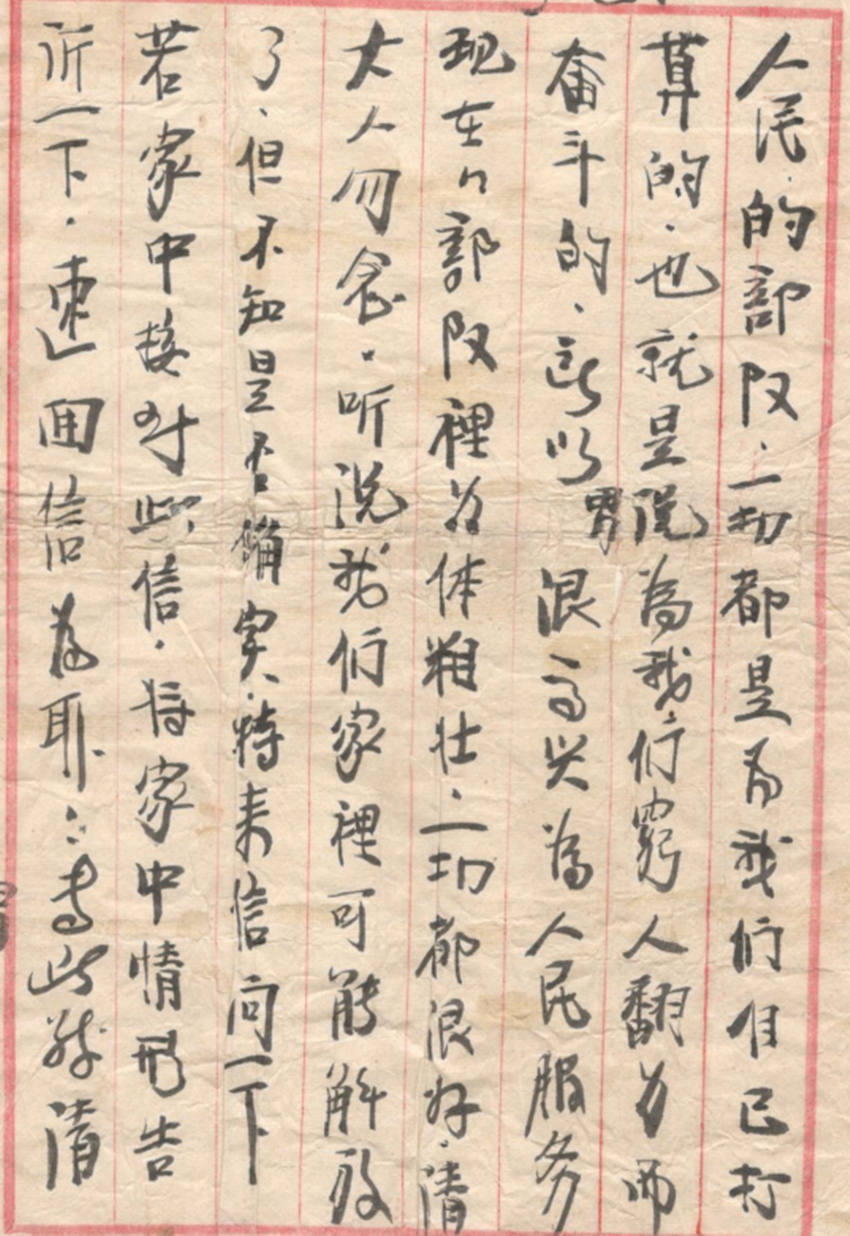 人民的部队、一切都是为我们自己打
算的、也就是说為我们窮人翻身而
奋斗的、所以男很高兴為人民服务
现在部队裡身体粗壮、一切都很好、請
大人勿念。听说我们家裡可能解放
了、但不知是否确实、特来信问一下
若家中接到此信、将家中情形告
訴一下、速回信為盼、专此敬請